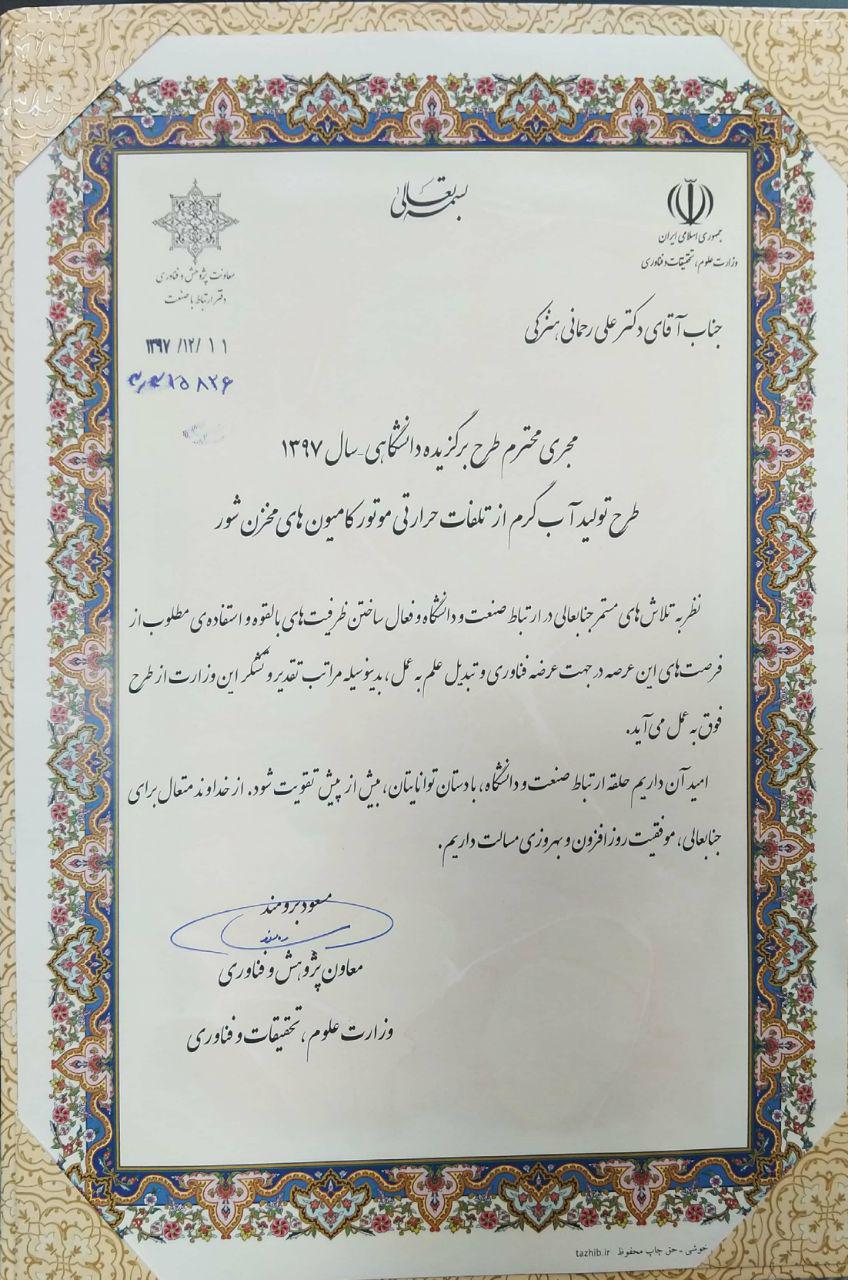 بسمه تعالی
جمهوری اسلامی ایران
وزارت علوم، تحقیقات و فناوری
معاونت پژوهش و فناوری
دفتر ارتباط با صنعت
۱۳۹۷/۱۲/۱۱
جناب آقای دکتر علی رحمانی هنزکی
مجری محترم طرح برگزیده دانشگاهی - سال ۱۳۹۷
طرح تولید آب گرم از تلفات حرارتی موتور کامیون های مخزن شور
نظر به تلاش های مستمر جنابعالی در ارتباط صنعت و دانشگاه و فعال ساختن ظرفیت های بالقوه و استفاده ی مطلوب از
فرصت های این عرصه در جهت عرضه فناوری و تبدیل علم به عمل، بدینوسیله مراتب تقدیر و تشکر این وزارت از طرح
فوق به عمل می آید.
امید آن داریم حلقه ارتباط صنعت و دانشگاه، با دستان توانایتان، بیش از پیش تقویت شود. از خداوند متعال برای
جنابعالی، موفقیت روز افزون و بهروزی مسالت داریم.
مسعود برومند
معاون پژوهش و فناوری
وزارت علوم، تحقیقات و فناوری
خوشی - حق چاپ محفوظ tazhib.ir